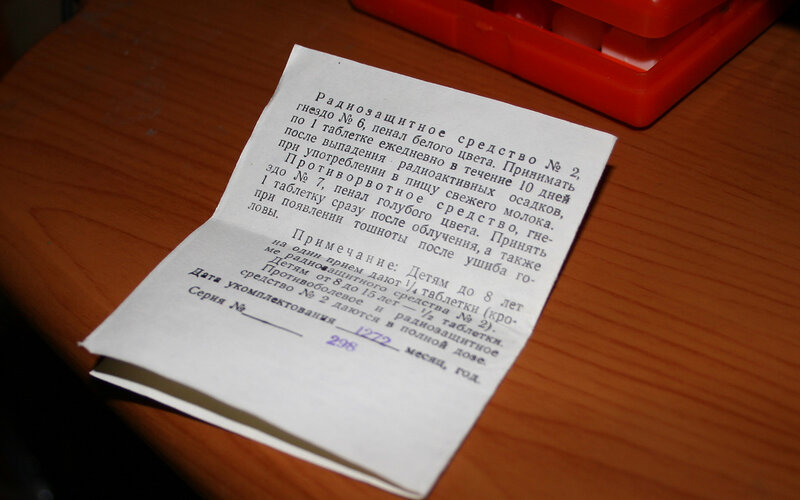 Радиозащитное средство № 2,
гнездо № 6, пенал белого цвета. Принимать
по 1 таблетке ежедневно в течение 10 дней
после выпадения радиоактивных осадков,
при употреблении в пищу свежего молока.
Противорвотное средство, гне-
здо № 7, пенал голубого цвета. Принять
1 таблетку сразу после облучения, а также
при появлении тошноты после ушиба го-
ловы.
Примечание: Детям до 8 лет
на один прием дают 1/4 таблетки (кро-
ме радиозащитного средства № 2).
Детям от 8 до 15 лет — 1/2 таблетки.
Противоболевое и радиозащитное
средство № 2 даются в полной дозе.
Дата укомплектования 1272 месяц, год.
Серия № 298